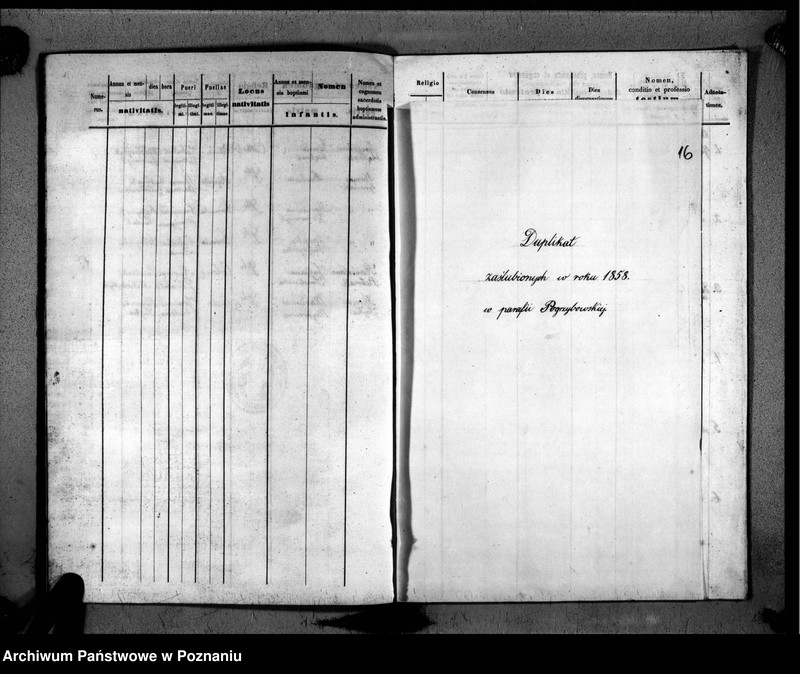 Nume-
rus.
Annus et men-
sis
dies
hora
nativitatis.
Pueri
legiti-
mi.
illegi-
timi.
Puellae
legiti-
mae
illegi-
timae
Locus
nativitatis
Annus et men-
sis baptismi
Nomen
Infantis.
Nomen et
cognomen
sacerdotis
baptismum
administrantis.
Religio
Consensus
Dies
Dies
Nomen,
conditio et professio
testium
Adnota-
tiones.
16
Duplikat
zaślubionych w roku 1858.
w parafii Pogrzybowskiej
Archiwum Państwowe w Poznaniu